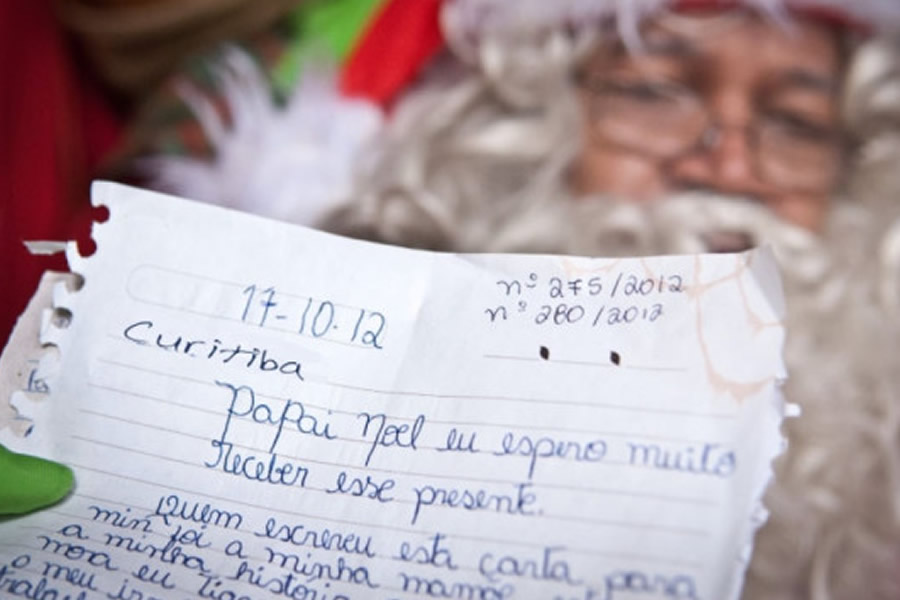 nº 275/2012
17-10.12
nº 280/2012
Curitiba
Papai Noel eu espero muito
Receber esse presente.
Quem escreveu esta carta para
min foi a minha mamãe
a minha historia
mora eu
o meu